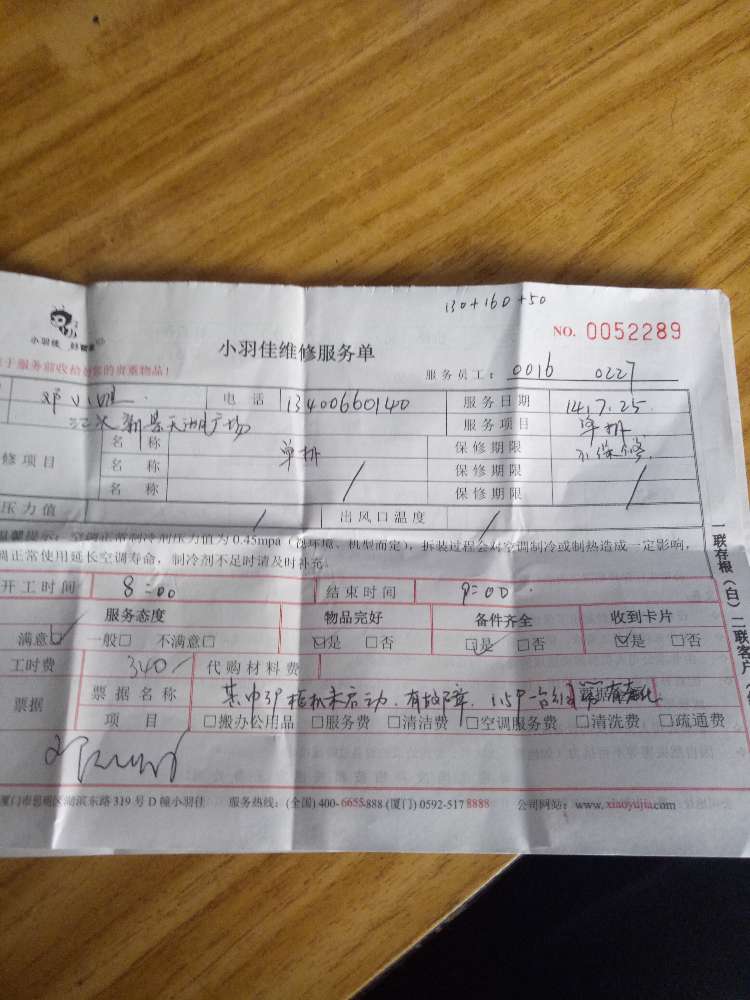 130+160+50
NO. 0052289
小羽佳
小羽佳维修服务单
于服务前收拾好您的贵重物品!
服务员工: 0016 0227
邓 电话 13400660140 服务日期 14.7.25.
新景天湖广场 服务项目 单拆
修项目 名称 单拆 保修期限 不保修
名称 保修期限
名称 保修期限
压力值 出风口温度
温馨提示: 空调正常制冷剂压力值为0.45mpa(视环境、机型而定), 拆装过程会对空调制冷或制热造成一定影响,
调正常使用延长空调寿命, 制冷剂不足时请及时补充。
开工时间 8:00 结束时间 9:00
服务态度 物品完好 备件齐全 收到卡片
满意☑ 一般□ 不满意□ ☑是 □否 ☑是 □否 ☑是 □否
工时费 340 代购材料费
票据 票据名称 其中3P 未启动. 有故障. 1.5P一台
项目 □搬办公用品 □服务费 □清洁费 □空调服务费 □清洗费 □疏通费
厦门市思明区湖滨东路319号D幢小羽佳 服务热线: (全国) 400-6655-888 (厦门) 0592-517 8888 公司网站: www.xiaoyujia.com
一联存根(白) 二联客户